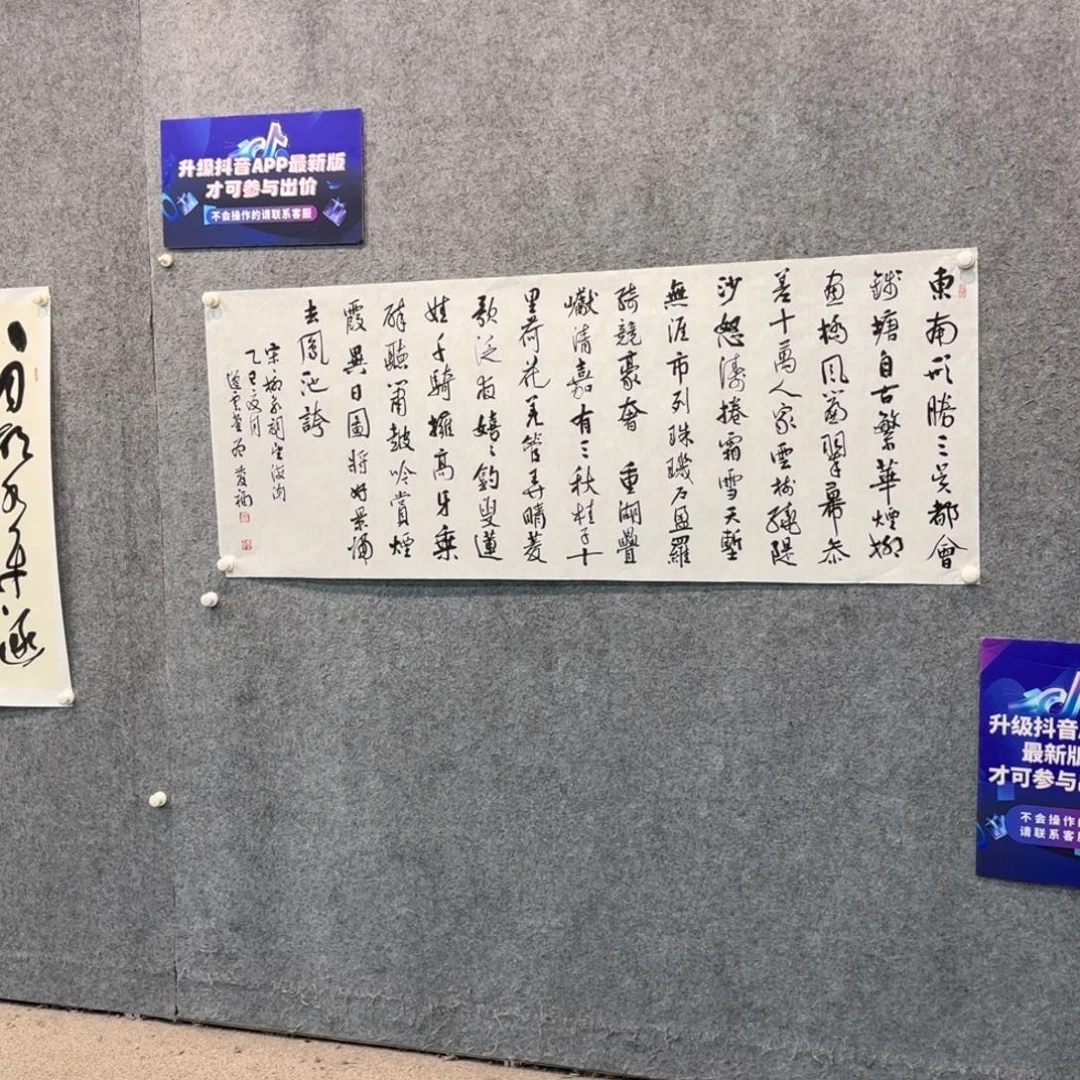 升级抖音APP最新版
才可参与出价
不会操作的请联系客服
東南形勝三吴都會
錢塘自古繁華煙柳
画橋風簾翠幕参
差十萬人家雲樹繞隄
沙怒濤捲霜雪天塹
無涯市列珠璣户盈羅
綺競豪奢 重湖疊
巘清嘉有三秋桂子十
里荷花羌管弄晴菱
歌泛夜嬉〻釣叟蓮
娃千騎擁高牙乘
醉聽簫鼓吟賞煙
霞異日圖將好景歸
去鳳池誇
宋柳永詞望海潮
乙巳夏月
升级抖音
最新版
才可参与
不会操作
请联系客